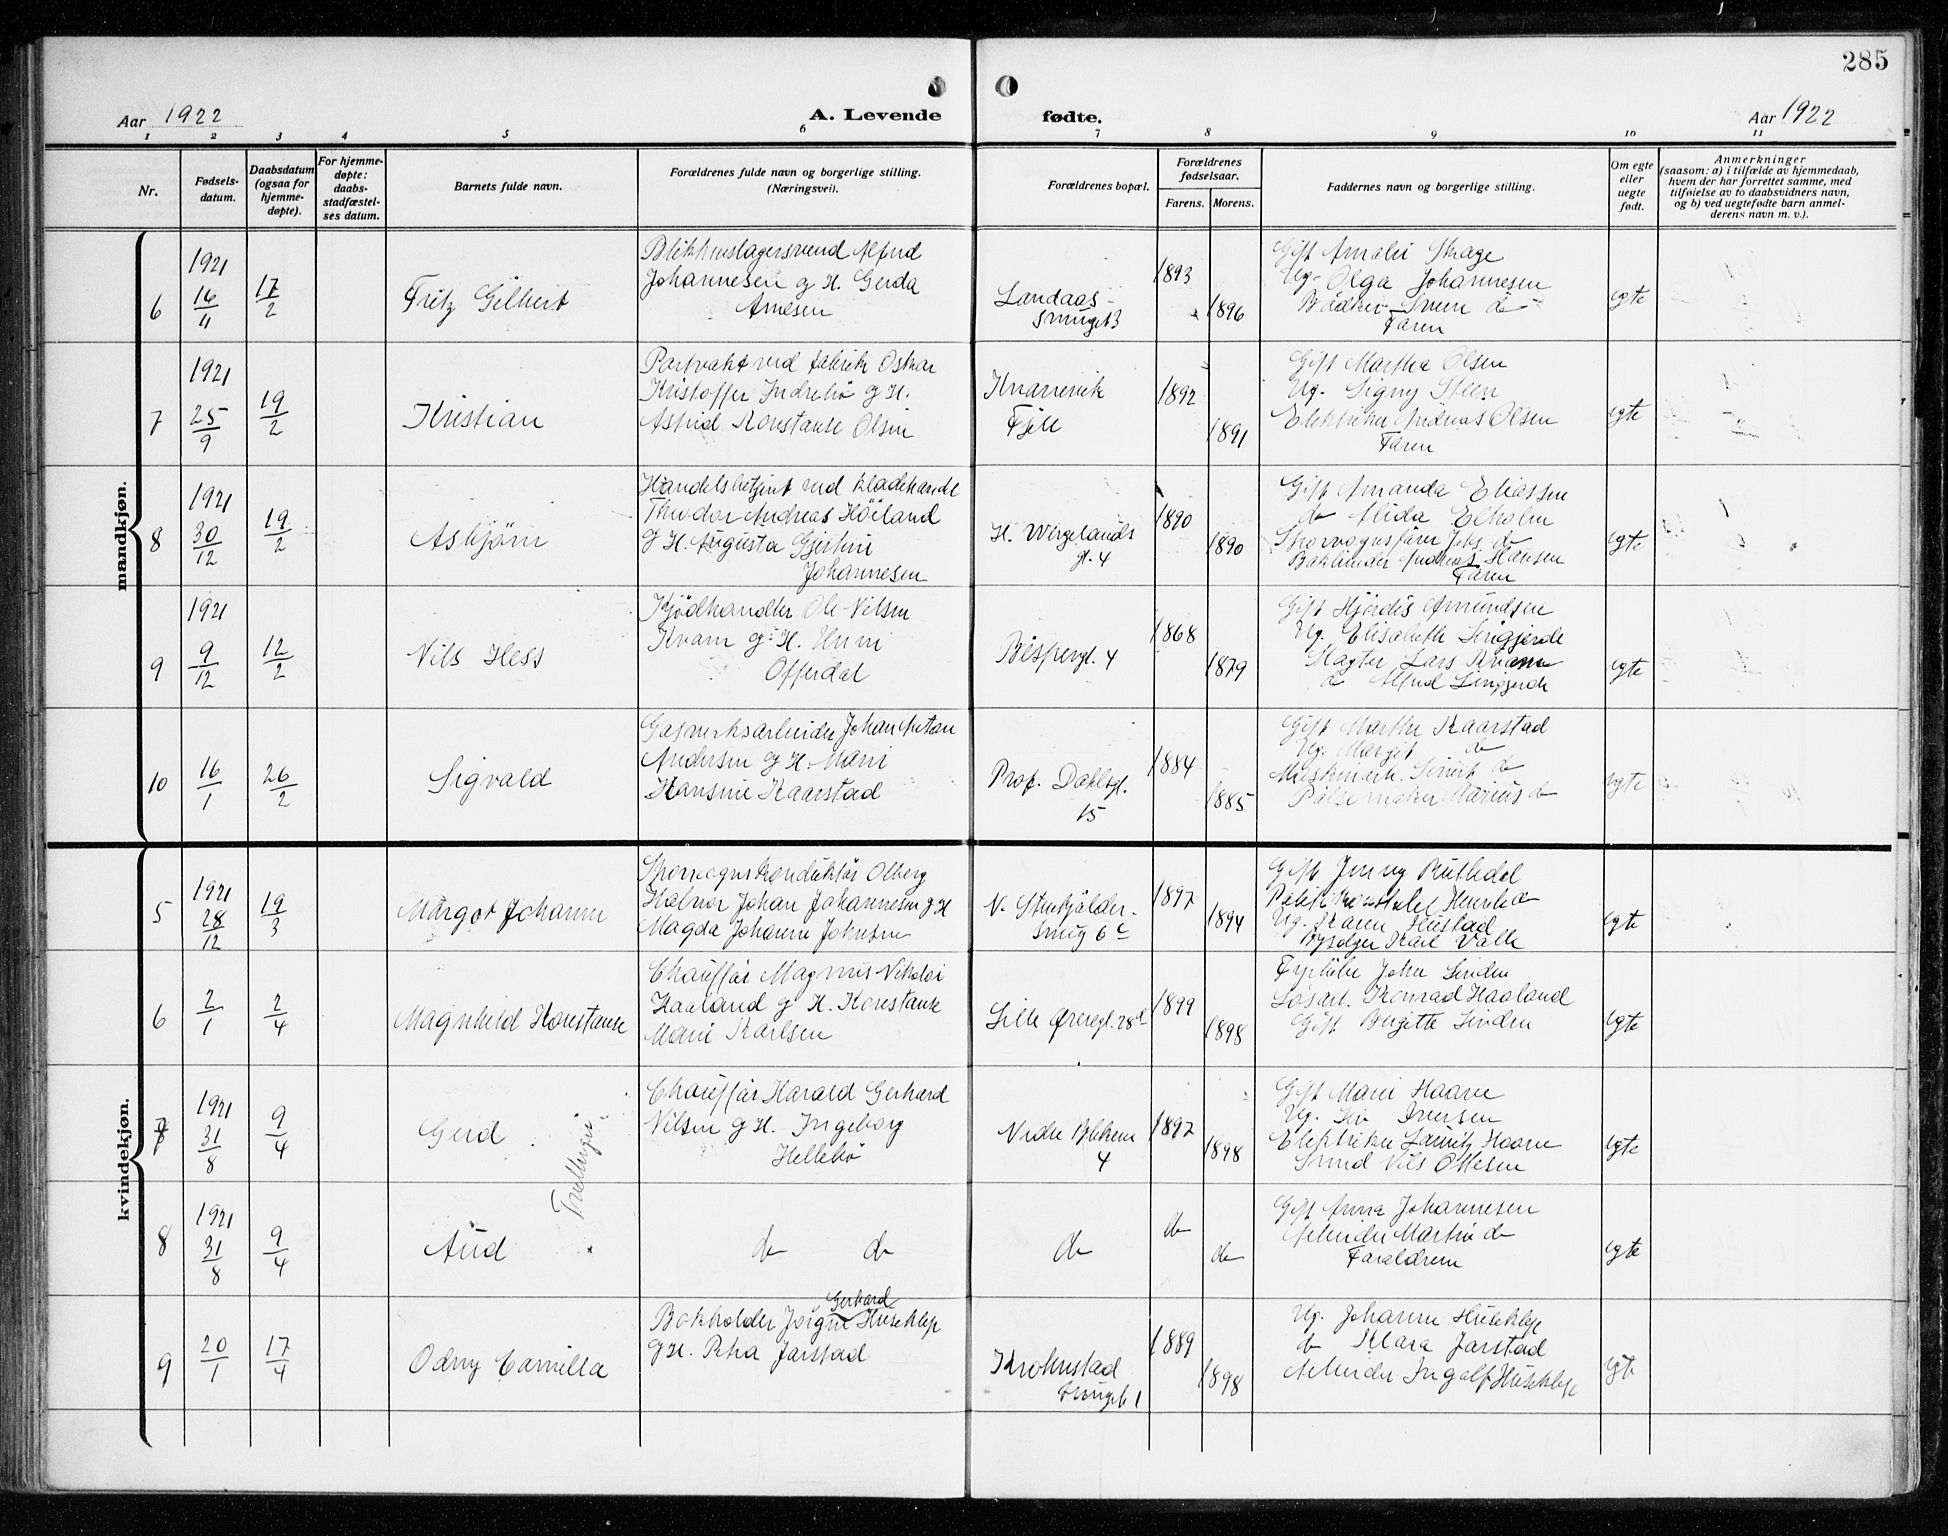 285
Aar 1922
A. Levende
fødte.
Aar 1922
1 2 3 4 5 6 7 8 9 10 11
Nr.
Fødsels-
datum.
Daabsdatum
(ogsaa for
hjemme-
døpte).
For hjemme-
døpte:
daabs-
stadfæstel-
ses datum.
Barnets fulde navn.
Forældrenes fulde navn og borgerlige stilling.
(Næringsvei).
Forældrenes bopæl.
Forældrenes
fødselsaar.
Farens. Morens.
Faddernes navn og borgerlige stilling.
Om egte
eller
uegte
født.
Anmerkninger
(saasom: a) i tilfælde av hjemmedaab,
hvem der har forrettet samme, med
tilføielse av to daabsvidners navn,
og b) ved uegtefødte barn anmel-
derens navn m. v.).
mandkjøn.
6
1921
16/11
17/2
Fritz Gilbert
Blikkenslagersvend Alfred
Johannesen g H. Gerda
Arnesen
Landaas-
smuget 3
1893
1896
Gift Amalie Skage
Ug. Olga Johannesen
Bødker Sven do
Faren
egte
7
1921
25/9
19/2
Kristian
Portvakt ved fabrik Oskar
Kristoffer Indrebö g H.
Astrid Konstanse Olsen
Knarrevik
Fjell
1892
1891
Gift Martha Olsen
Ug. Signy Steen
Elektriker Andreas Olsen
Faren
egte
8
1921
30/12
19/2
Asbjørn
Handelsbetjent ved kladehandel
Theodor Andreas Höiland
g H. Augusta Gjertine
Johannesen
H. Wergelands
gt. 4
1890
1890
Gift Amanda Eliassen
do Alida Elholm
Sporvognsfører Jak. do
Andreas Hansen
Faren
egte
9
1921
9/12
12/2
Nils Hess
Kjödhandler Ole Nilsen
Kvam g H.
Offerdal
Bispengt. 4
1868
1879
Gift Hjördis Amundsen
Ug. Elisabeth
Lars Kvam
do Alfred
egte
10
16/1
26/2
Sigvald
Gasverksarbeider Johan Anton
Andersen g H. Marie
Hansine Kaarstad
Prof. Dahlsgt.
15
1884
1885
Gift Marthe Kaarstad
Ug. Margit do
do
Pölsemaker Marius do
egte
kvindekjøn.
5
1921
28/12
19/3
Margot Johanne
Sporvognskonduktör Olberg
Halvor Johan Johannesen g H
Magda Johanne Johnsen
N. Stenkjelder-
smug 6c
1897
1894
Gift Jenny Rutledal
Politikonstabel Henrik do
Ug. Karen Hustad
Karl Valle
egte
6
2/1
2/4
Magnhild Konstanse
Chauffør Magnus Nikolai
Haaland g H. Konstanse
Marie Karlsen
Lille Øvregt. 28
1899
1898
John Linden
Løsarb. Konrad Haaland
Gift Birgitte Linden
egte
7
1921
31/8
9/4
Gerd
Tvillinger
Chauffør Harald Gerhard
Nilsen g H. Ingeborg
Hellebø
Nedre Blekevei
4
1897
1898
Gift Marie Haave
Ug. Iversen
Elektriker Lauritz Haave
Smed Nils Ottesen
egte
8
1921
31/8
9/4
Aud
do do
do
do
do
Gift Anna Johannesen
Arbeider Martin do
Forældrene
egte
9
20/1
17/4
Odny Camilla
Gerhard
Bokholder Jörgen Huseklep
g H. Jarstad
Krohnstad
smuget 1
1889
1898
Ug. Johanne Huseklep
do Klara Jarstad
Arbeider Ingolf Huseklep
egte